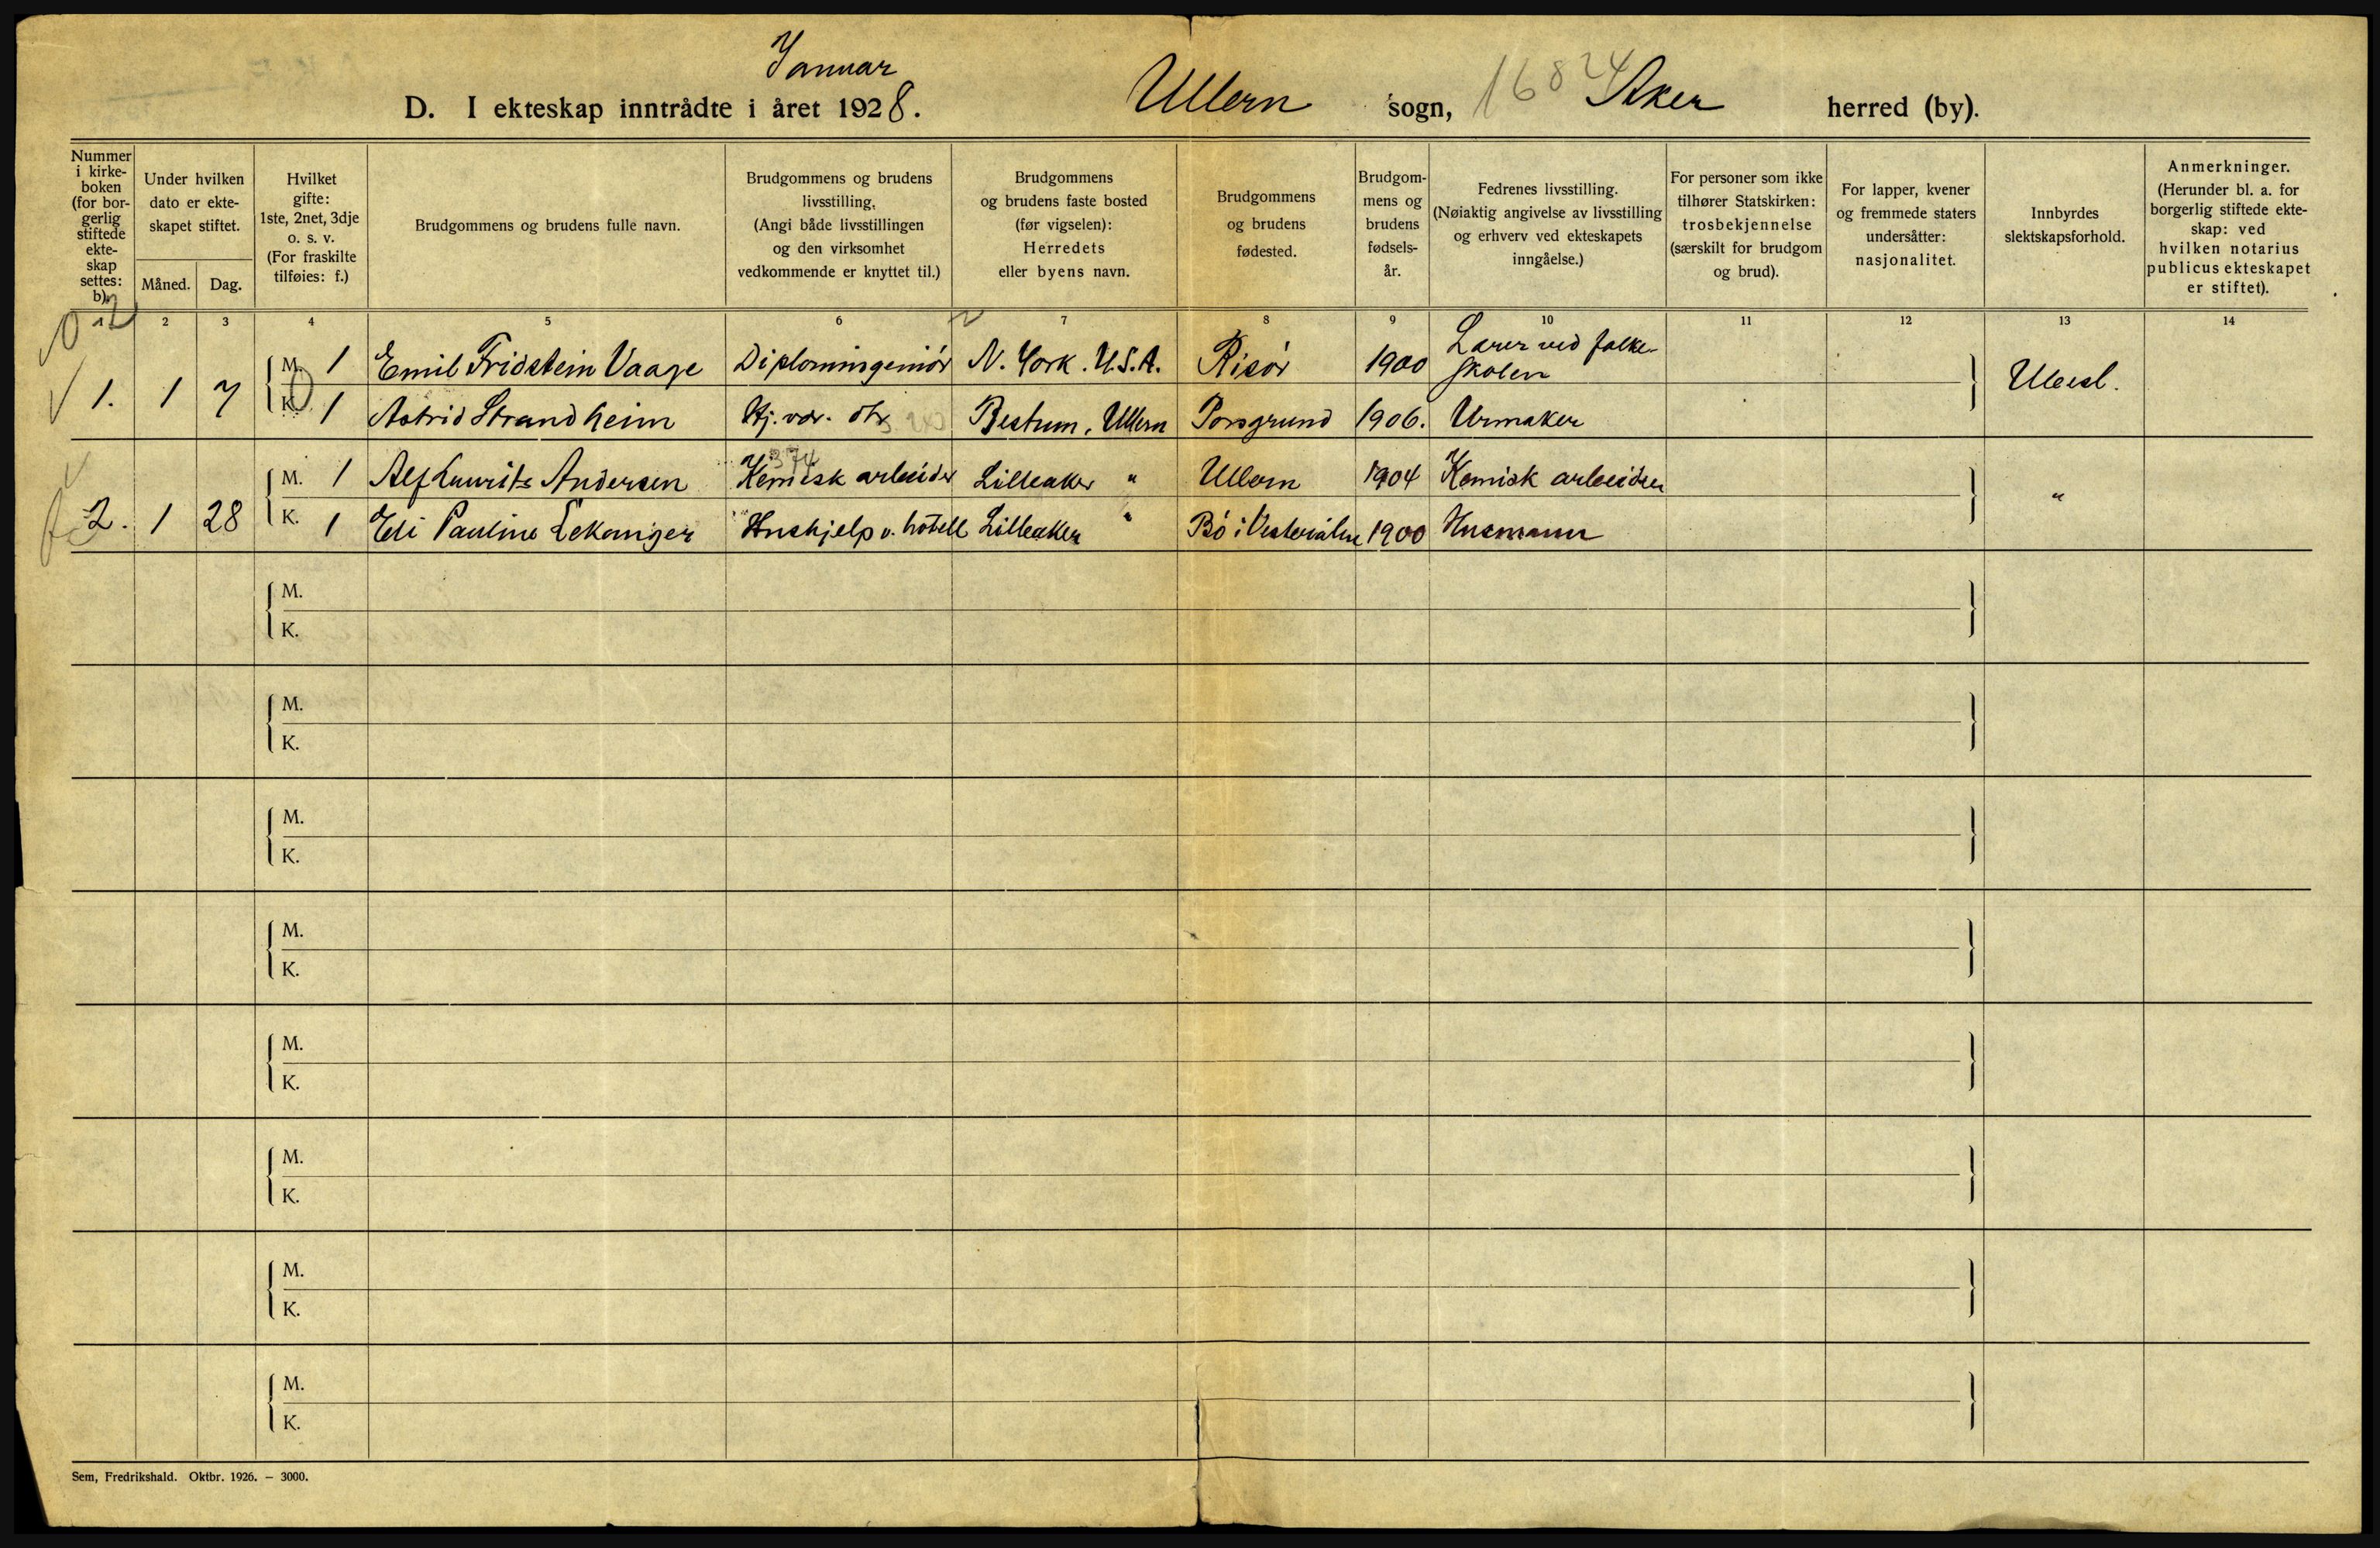 Januar
D. I ekteskap inntrådte i året 1928. Ullern sogn, 1684 Aker herred (by).
Nummer i kirke-boken (for bor-gerlig stiftede ekte-skap settes: b).
Under hvilken dato er ekte-skapet stiftet.
Måned. Dag.
Hvilket gifte: 1ste, 2net, 3dje o. s. v. (For fraskilte tilføies: f.)
Brudgommens og brudens fulle navn.
Brudgommens og brudens livsstilling. (Angi både livsstillingen og den virksomhet vedkommende er knyttet til.)
Brudgommens og brudens faste bosted (før vigselen): Herredets eller byens navn.
Brudgommens og brudens fødested.
Brudgom-mens og brudens fødsels-år.
Fedrenes livsstilling. (Nøiaktig angivelse av livsstilling og erhverv ved ekteskapets inngåelse.)
For personer som ikke tilhører Statskirken: trosbekjennelse (særskilt for brudgom og brud).
For lapper, kvener og fremmede staters undersåtter: nasjonalitet.
Innbyrdes slektskapsforhold.
Anmerkninger. (Herunder bl. a. for borgerlig stiftede ekte-skap: ved hvilken notarius publicus ekteskapet er stiftet).
1 2 3 4 5 6 7 8 9 10 11 12 13 14
1. 1 7 M. 1 Emil Fridstein Vaage Diplomingeniør N. York. U.S.A. Risør 1900 Lærer ved folke-skolen Ubesl.
K. 1 Astrid Strandheim Hj. vær. Bestum, Ullern Porsgrund 1906. Urmaker
374
2. 1 28 M. 1 Alf Lauritz Andersen Kemisk arbeider Lilleaker " Ullern 1904 Kemisk arbeider "
K. 1 Eli Pauline Lekanger Hushjelp v. hotell Lilleaker " Bø i Vesterålen 1900 Husmann
M.
K.
M.
K.
M.
K.
M.
K.
M.
K.
M.
K.
M.
K.
M.
K.
Sem, Fredrikshald. Oktbr. 1926. – 3000.